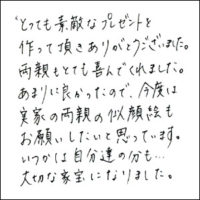 とっても素敵なプレゼントを
作って頂きありがとうございました。
両親もとても喜んでくれました。
あまりに良かったので、今度は
実家の両親の似顔絵も
お願いしたいと思っています。
いつかは自分達の分も…
大切な家宝になりました。